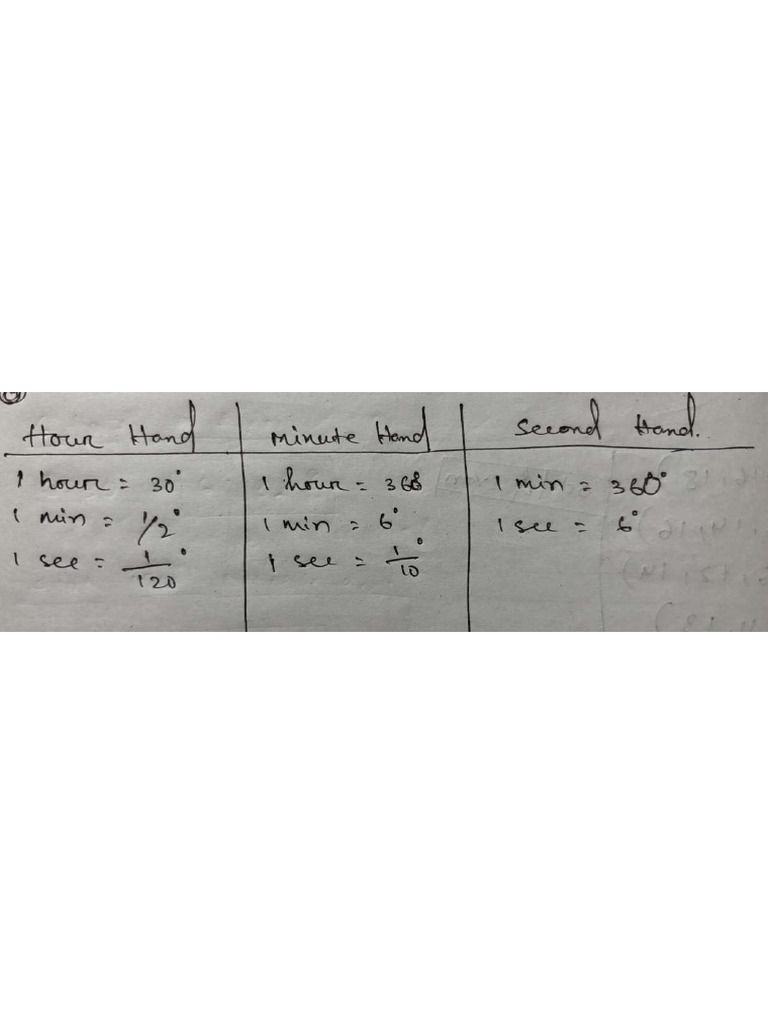 Hour Hand | minute Hand | Second Hand.
1 hour = 30° | 1 hour = 360° | 1 min = 360°
1 min = 1/2° | 1 min = 6° | 1 sec = 6°
1 sec = 1/120° | 1 sec = 1/10°